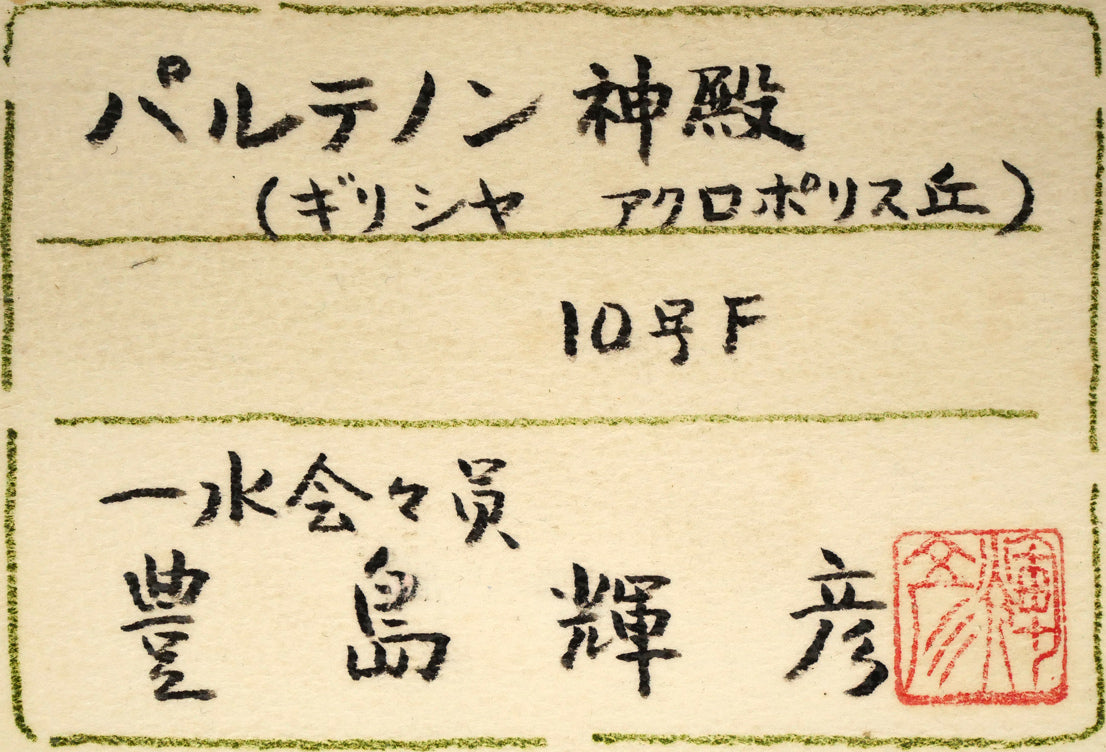 パルテノン神殿
(ギリシャ アクロポリス丘)
10号F
一水会々員
豊島輝彦